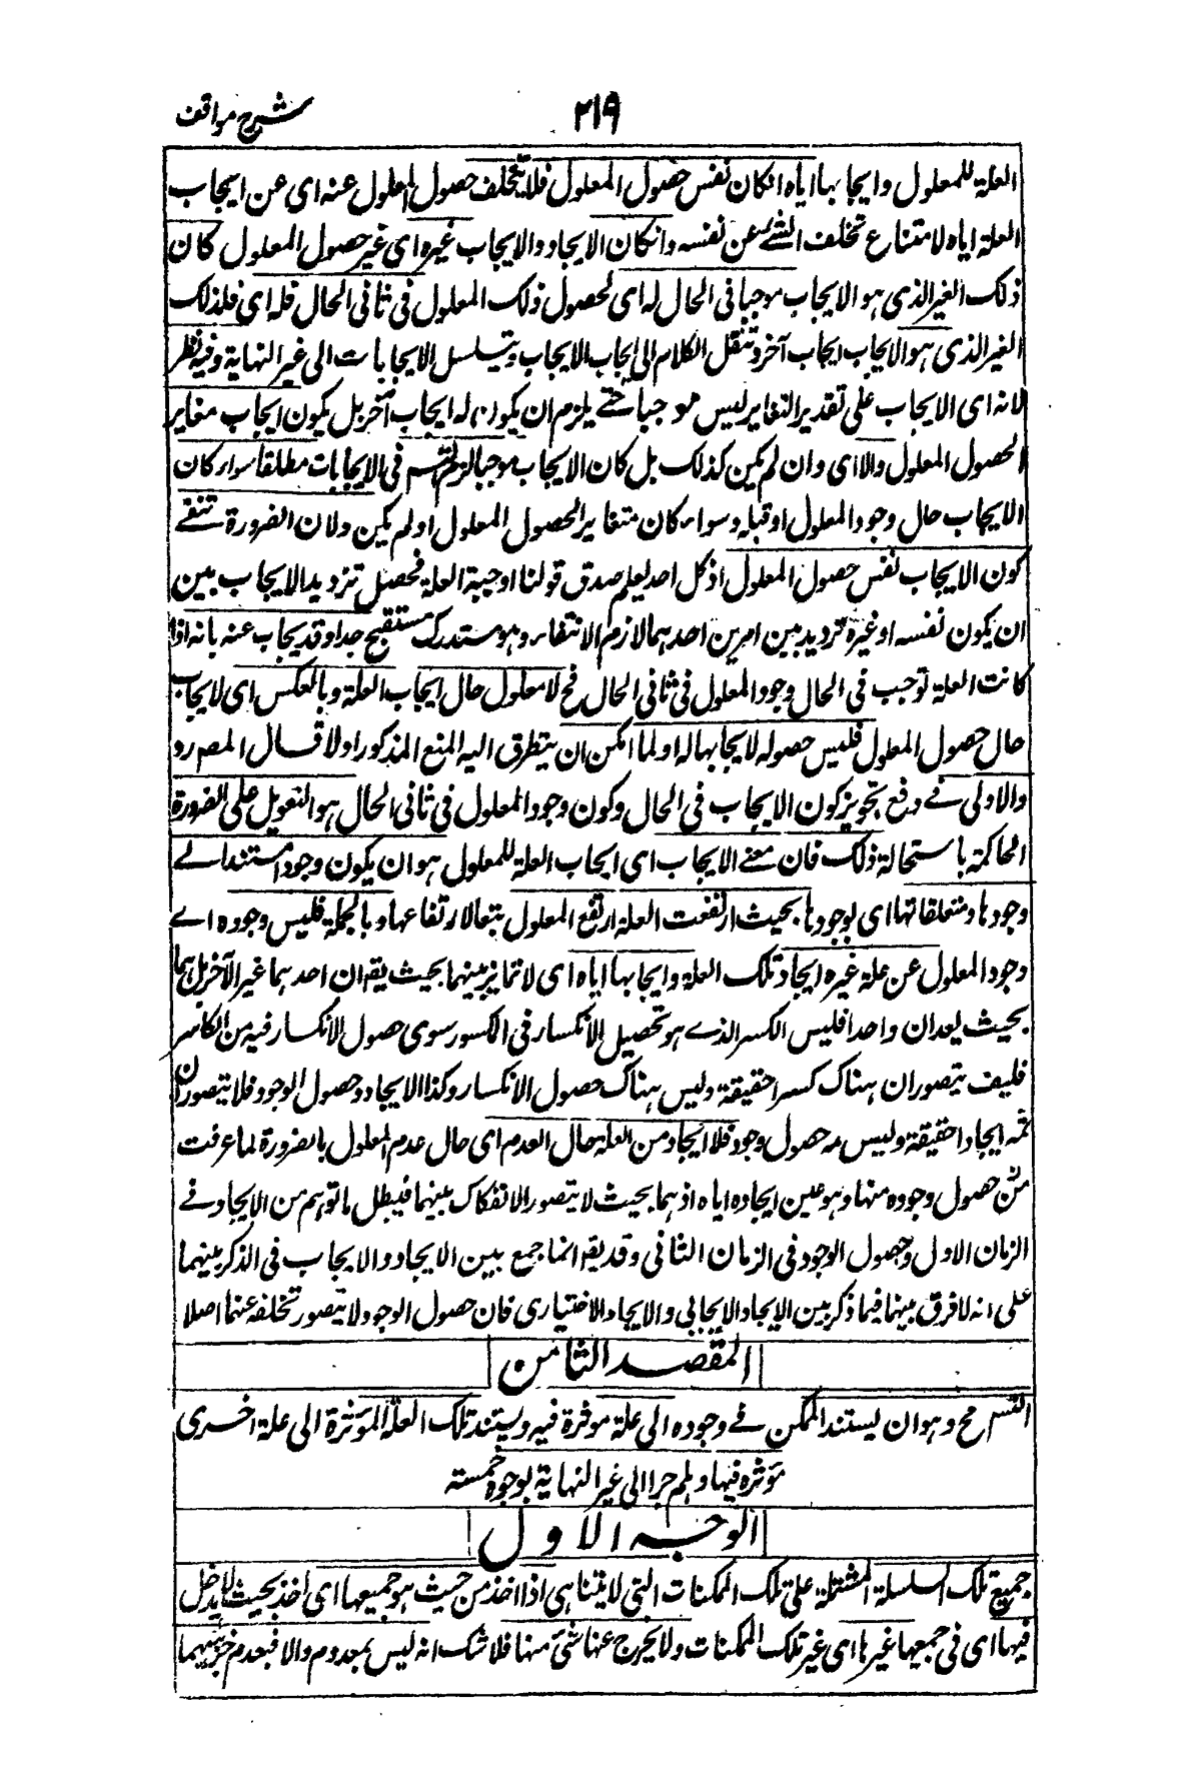 شرح مواقف
٢١٩
العلة للمعلول وايجابها اياه انكان نفس حصول المعلول فلا يتخلف حصول المعلول عنه اى عن ايجاب
العلة اياه لامتناع تخلف الشئ عن نفسه وانكان الايجاد والايجاب غيره اى غير حصول المعلول كان
ذلك الغير الذى هو الايجاب موجبا فى الحال له اى لحصول ذلك المعلول فى ثانى الحال فله اى فلذلك
الغير الذى هو الايجاب ايجاب آخر وتنقل الكلام الى ايجاب الايجاب ويتسلسل الايجابات الى غير النهاية وفيه نظر
لانه اى الايجاب على تقدير التغاير ليس موجبا حتے يلزم ان يكون له ايجاب آخر بل يكون ايجاب مغاير
لحصول المعلول والا اى وان لم يكن كذلك بل كان الايجاب موجبا لزم التسم فى الايجابات مطلقا سواء كان
الايجاب حال وجود المعلول او قبله وسواء كان متغايرا لحصول المعلول او لم يكن ولان الضرورة تنفے
كون الايجاب نفس حصول المعلول اذ كل احد يعلم صدق قولنا اوجبته العلة فحصل ترديد الايجاب بين
ان يكون نفسه او غيره ترديد بين امرين احدهما لازم الانتفاء وهو مستدرك مستقبح جدا وقد يجاب عنه بانه اذا
كانت العلة توجب فى الحال وجود المعلول فى ثانى الحال فح لا معلول حال ايجاب العلة وبالعكس اى لا ايجاب
حال حصول المعلول فليس حصوله لايجابها له اولما امكن ان يتطرق اليه المنع المذكور اولا قال المصرو
والاولى فے دفع تجويز كون الايجاب فى الحال وكون وجود المعلول فى ثانى الحال هو التعويل على الضرورة
الحاكمة باستحالة ذلك فان معنے الايجاب اى ايجاب العلة للمعلول هو ان يكون وجوده مستندا الے
وجودها ومتعلقا بها اى بوجودها بحيث ارتفعت العلة ارتفع المعلول بتعا لارتفاعها وبالجملة فليس وجوده اے
وجود المعلول عن علة غيره ايجاد تلك العلة وايجابها اياه اى لا تمايز بينهما بحيث يقه ان احدهما غير الآخر بل هما
بحيث يعدان واحدا فليس الكسر الذے هو تحصيل الانكسار فى الكسور سوى حصول الانكسار فيه من الكاسر
فكيف يتصور ان هناك كسرا حقيقة وليس هناك حصول الانكسار وكذا الايجاد وحصول الوجود فلا يتصور ان
ثمه ايجادا حقيقة وليس مه حصول وجود فلا ايجاد من العلة حال العدم اى حال عدم المعلول بالضرورة لما عرفت
من ان حصول وجوده منها وهو عين ايجاده اياه اذ هما بحيث لا يتصور الانفكاك بينهما فيبطل ما توهم من الايجاد فے
الزمان الاول وحصول الوجود فى الزمان الثانى وقد يقه انما جمع بين الايجاد والايجاب فى الذكر بينهما
على انه لا فرق بينهما فيما ذكر بين الايجاد الايجابى والايجاد الاختيارى فان حصول الوجود لا يتصور تخلفه عنهما اصلا
المقصد الثامن
التسم مح وهو ان يستند الممكن فے وجوده الى علة موثرة فيه ويستند تلك العلة الموثرة الى علة اخرى
مؤثرة فيها وهلم جرا الى غير النهاية بوجوه خمسته
الوجه الاول
جميع تلك السلسلة المشتملة على تلك الممكنات التى لا يتناهى اذا اخذ من حيث هو جميعها اى اخذ بحيث لا يدخل
فيها اى فى جميعها غيرها اى غير تلك الممكنات ولا يخرج عنها شئ منها فلا شك انه ليس بمعدوم والا فبعدم